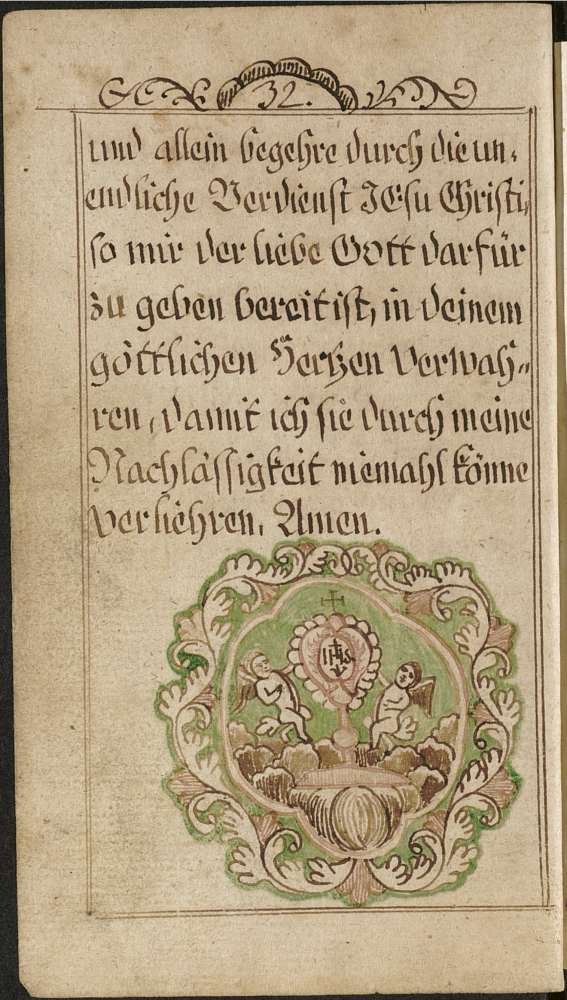 32.
und allein begehre durch die un-
endliche Verdienst JEsu Christi,
so mir der liebe Gott darfür
zu geben bereit ist, in deinem
göttlichen Hertzen verwah-
ren, damit ich sie durch meine
Nachlässigkeit niemahl könne
verliehren, Amen.
IHS